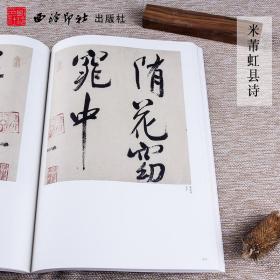 西泠印社出版社
米芾虹县诗
随花窈
窕中